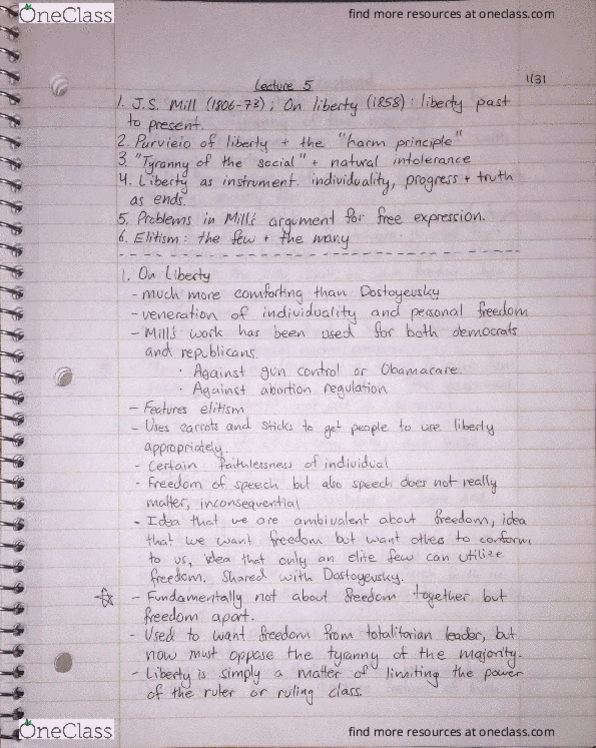 OneClass
find more resources at oneclass.com
Lecture 5
1/31
1. J.S. Mill (1806-73); On liberty (1858): liberty past
to present.
2. Purvieio of liberty + the "harm principle"
3. "Tyranny of the social" + natural intolerance
4. Liberty as instrument. individuality, progress + truth
as ends.
5. Problems in Mill's argument for free expression.
6. Elitism: the few + the many
1. On Liberty
- much more comforting than Dostoyevsky
- veneration of individuality and personal freedom
- Mill's work has been used for both democrats
and republicans.
· Against gun control or Obamacare.
· Against abortion regulation
- Features elitism
- Uses carrots and sticks to get people to use liberty
appropriately.
- Certain faithlessness of individual
- Freedom of speech but also speech does not really
matter, inconsequential
- Idea that we are ambivalent about freedom, idea
that we want freedom but want others to conform
to us, idea that only an elite few can utilize
freedom. Shared with Dostoyevsky.
- Fundamentally not about freedom together but
freedom apart.
- Used to want freedom from totalitarian leader, but
now must oppose the tyranny of the majority.
- Liberty is simply a matter of limiting the power
of the ruler or ruling class.
OneClass
find more resources at oneclass.com